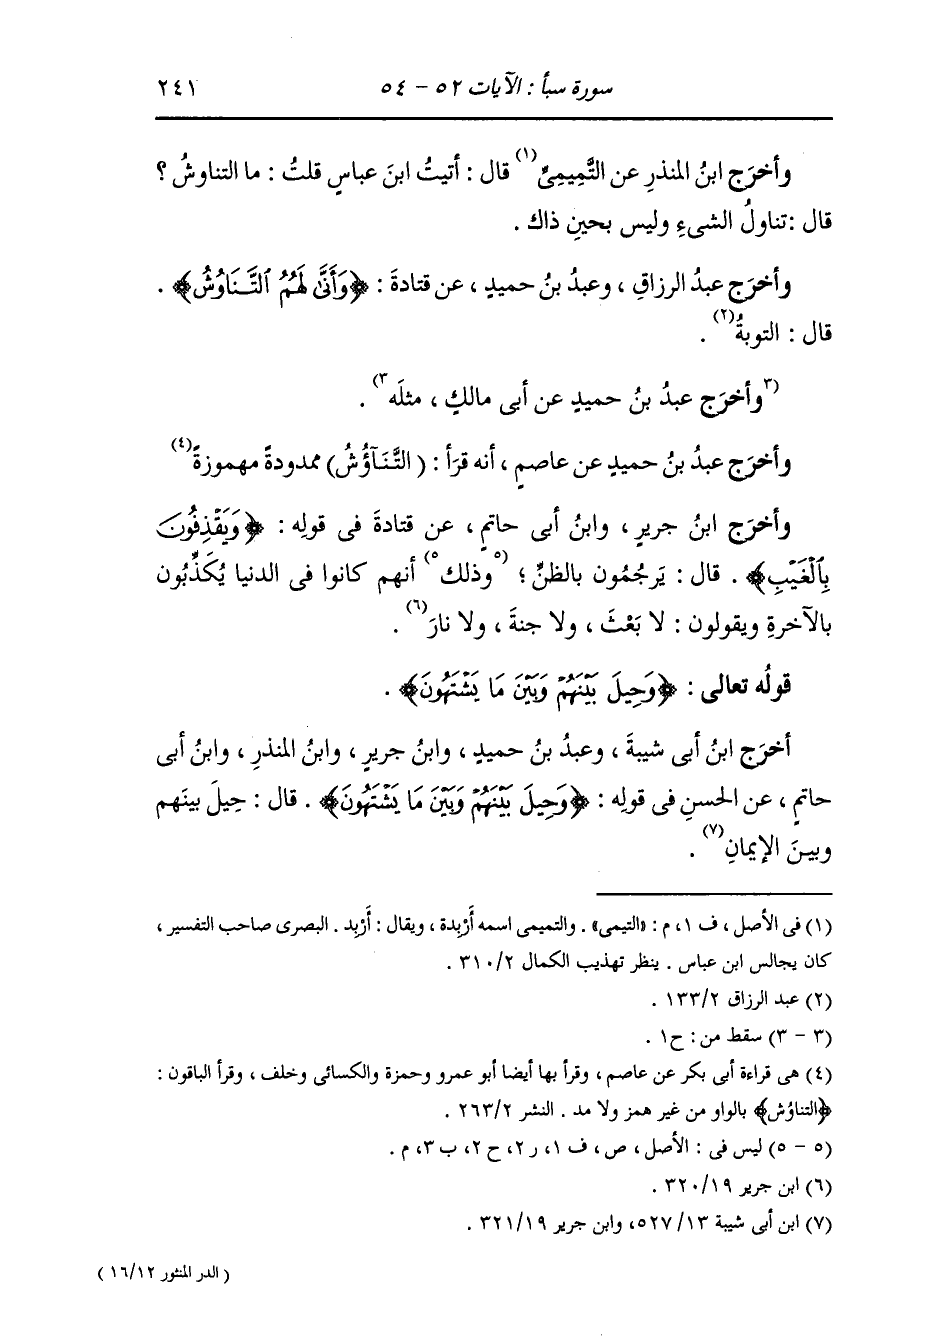 سورة سبأ : الآيات ٥٢ - ٥٤ ٢٤١
وأخرَج ابنُ المنذرِ عن التَّمِيمِىِّ(١) قال : أتيتُ ابنَ عباسٍ قلتُ : ما التناوشُ ؟
قال :تناولُ الشىءِ وليس بحينِ ذاك .
وأخرَج عبدُ الرزاقِ ، وعبدُ بنُ حميدٍ ، عن قتادةَ : ﴿وَأَنَّىٰ لَهُمُ ٱلتَّنَاوُشُ﴾ .
قال : التوبةُ(٢) .
(٣وأخرَج عبدُ بنُ حميدٍ عن أبى مالكٍ ، مثلَه٣) .
وأخرَج عبدُ بنُ حميدٍ عن عاصمٍ ، أنه قرَأ : (التَّنَآؤُشُ) ممدودةً مهموزةً(٤)
وأخرَج ابنُ جريرٍ ، وابنُ أبى حاتمٍ ، عن قتادةَ فى قولِه : ﴿وَيَقْذِفُونَ
بِٱلْغَيْبِ﴾ . قال : يَرجُمُون بالظنِّ ؛ (٥وذلك٥) أنهم كانوا فى الدنيا يُكَذِّبُون
بالآخرةِ ويقولون : لا بَعْثَ ، ولا جنةَ ، ولا نارَ(٦) .
قولُه تعالى : ﴿وَحِيلَ بَيْنَهُمْ وَبَيْنَ مَا يَشْتَهُونَ﴾ .
أخرَج ابنُ أبى شيبةَ ، وعبدُ بنُ حميدٍ ، وابنُ جريرٍ ، وابنُ المنذرِ ، وابنُ أبى
حاتمٍ ، عن الحسنِ فى قولِه : ﴿وَحِيلَ بَيْنَهُمْ وَبَيْنَ مَا يَشْتَهُونَ﴾ . قال : حِيلَ بينَهم
وبينَ الإيمانِ(٧) .
(١) فى الأصل ، ف ١، م : «التيمى» . والتميمى اسمه أَرْبِدة ، ويقال : أَرْبِد . البصرى صاحب التفسير ،
كان يجالس ابن عباس . ينظر تهذيب الكمال ٣١٠/٢ .
(٢) عبد الرزاق ١٣٣/٢ .
(٣ - ٣) سقط من : ح١ .
(٤) هى قراءة أبى بكر عن عاصم ، وقرأ بها أيضا أبو عمرو وحمزة والكسائى وخلف ، وقرأ الباقون :
﴿التناوُش﴾ بالواو من غير همز ولا مد . النشر ٢٦٣/٢ .
(٥ - ٥) ليس فى : الأصل ، ص ، ف ١، ر ٢، ح ٢، ب ٣، م .
(٦) ابن جرير ٣٢٠/١٩ .
(٧) ابن أبى شيبة ٥٢٧/١٣، وابن جرير ٣٢١/١٩ .
( الدر المنثور ١٦/١٢ )